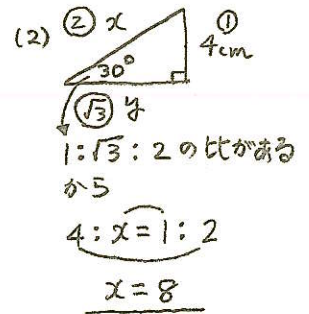 (2) ② x ①
4cm
30°
√3 y
1:√3:2 の比がある
から
4:x=1:2
x=8